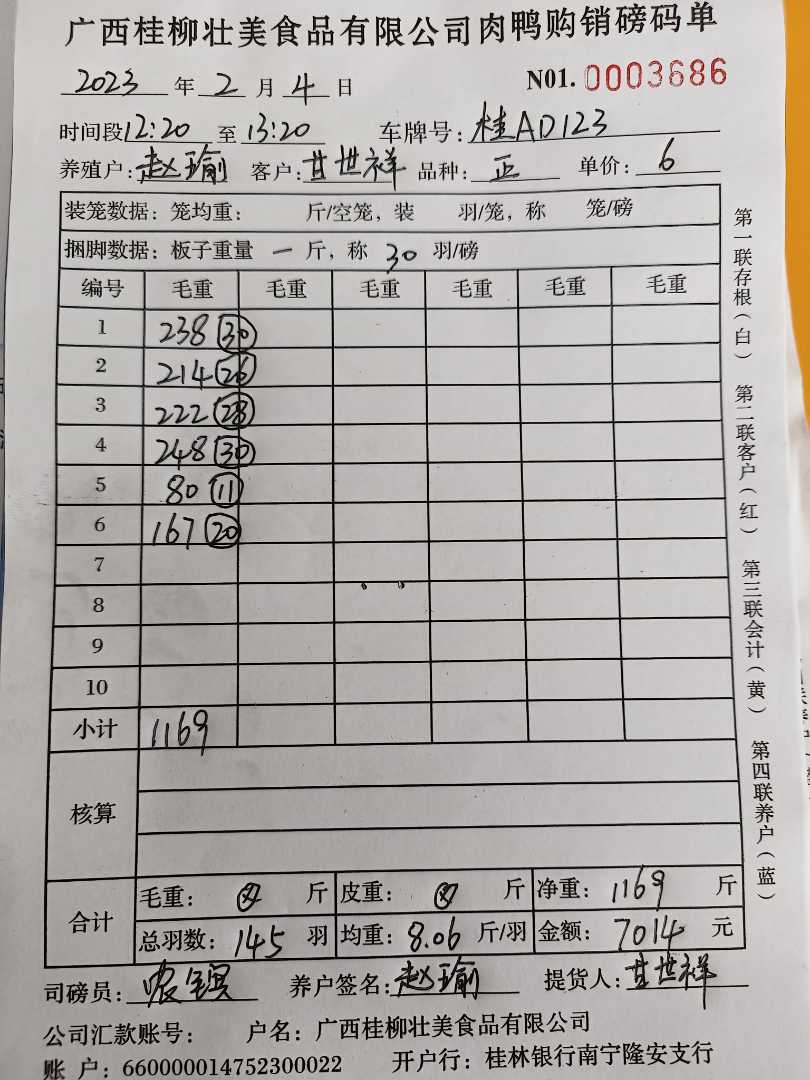 广西桂柳壮美食品有限公司肉鸭购销磅码单
2023 年 2 月 4 日 N01. 0003686
时间段12:20 至 13:20 车牌号: 桂AD123
养殖户: 赵瑜 客户: 甘世祥 品种: 正 单价: 6
装笼数据: 笼均重: 斤/空笼, 装 羽/笼, 称 笼/磅
捆脚数据: 板子重量 一 斤, 称 30 羽/磅
编号 毛重 毛重 毛重 毛重 毛重 毛重
1 238 30
2 214 26
3 222 28
4 248 30
5 80 11
6 167 20
7
8
9
10
小计 1169
核算
合计
毛重: 斤 皮重: 斤 净重: 1169 斤
总羽数: 145 羽 均重: 8.06 斤/羽 金额: 7014 元
司磅员: 养户签名: 赵瑜 提货人: 甘世祥
公司汇款账号: 户名: 广西桂柳壮美食品有限公司
账 户: 660000014752300022 开户行: 桂林银行南宁隆安支行
第一联存根(白) 第二联客户(红) 第三联会计(黄) 第四联养户(蓝)